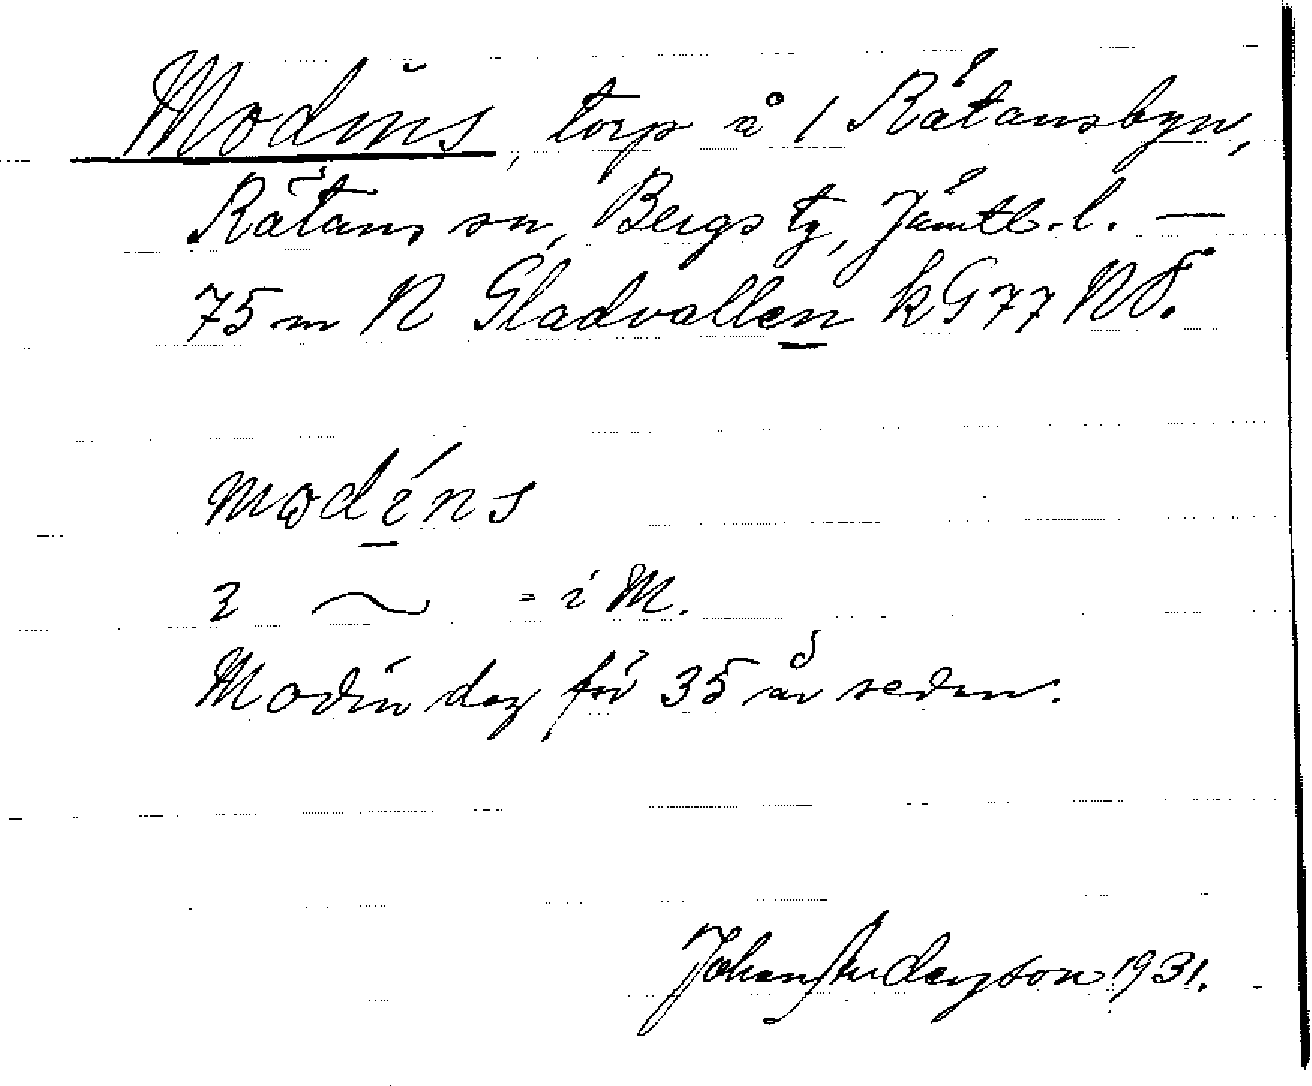 Modins, torp å 1 Rätansbyn,
Rätans sn, Bergs tg, Jämtl. l. —
75 m N Gladvallen kG77 NÖ.
modíns
3 ~ = i M.
Modin dog för 35 år sedan.
Johan Anderson 1931.